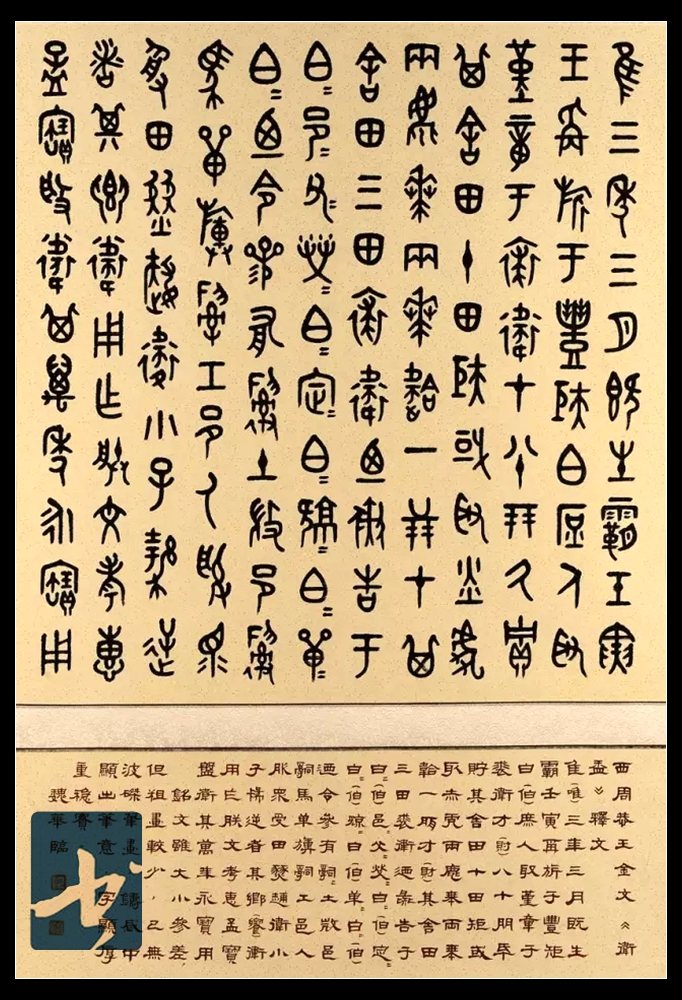 隹三年三月既生霸壬寅
王爯旂于豐矩白庶人取
堇章于裘衛才八十朋厥貯
其舍田十田矩或取赤虎
兩麀𠦪兩𠦪韐一才廿朋其
舍田三田裘衛迺彘告于
白邑父𤇾白定白琼白單
白迺令參有𤔲𤔲土𢼸邑𤔲
馬單旟𤔲工邑人服眾
受田燹趞衛小子逆
者其鄉衛用乍朕文考惠
孟寶盤衛其萬年永寶用
西周恭王金文《衛
盉》釋文
隹(唯)三年三月既生
霸壬寅王爯旂于豐矩
白(伯)庶人取堇章于
裘衛才(財)八十朋厥
貯其舍田十田矩或
取赤虎兩麀𠦪兩𠦪
韐一才(財)其舍田
三田裘衛迺彘告于
白(伯)邑父𤇾白(伯)定
白(伯)琼白(伯)單白(伯)
迺令參有𤔲土𢼸邑
𤔲馬單旟𤔲工邑人
服眾受田燹趞衛小
子逆者其鄉(饗)衛
用乍朕文考惠孟寶
盤衛其萬年永寶用
銘文雖大小參差,
但粗畫較少,已無
波磔筆畫,鑄中
顯出筆意,字顯厚
重穩實
魏華臨